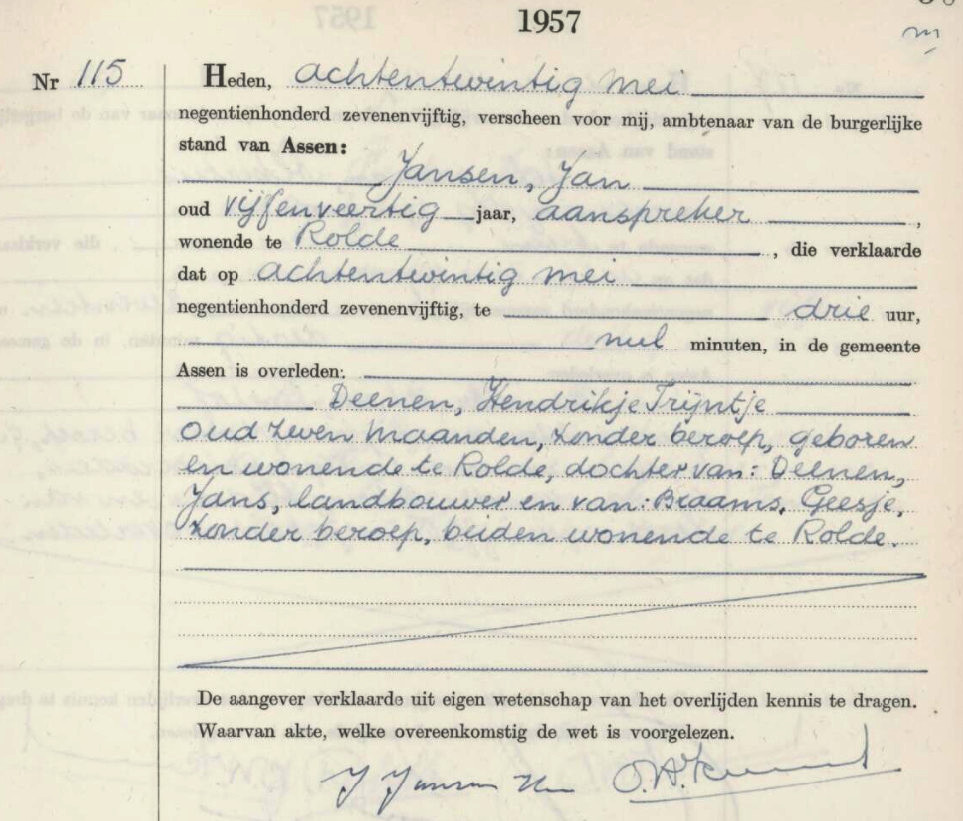 1957
Nr 115
Heden, achtentwintig mei
negentienhonderd zevenenvijftig, verscheen voor mij, ambtenaar van de burgerlijke
stand van Assen:
Jansen, Jan
oud vijfenveertig jaar, aanspreker ,
wonende te Rolde , die verklaarde
dat op achtentwintig mei
negentienhonderd zevenenvijftig, te drie uur,
nul minuten, in de gemeente
Assen is overleden:
Deenen, Hendrikje Trijntje
oud zeven maanden, zonder beroep, geboren
en wonende te Rolde, dochter van: Deenen,
Jans, landbouwer en van: Braams, Geesje,
zonder beroep, beiden wonende te Rolde.
De aangever verklaarde uit eigen wetenschap van het overlijden kennis te dragen.
Waarvan akte, welke overeenkomstig de wet is voorgelezen.
J Jansen